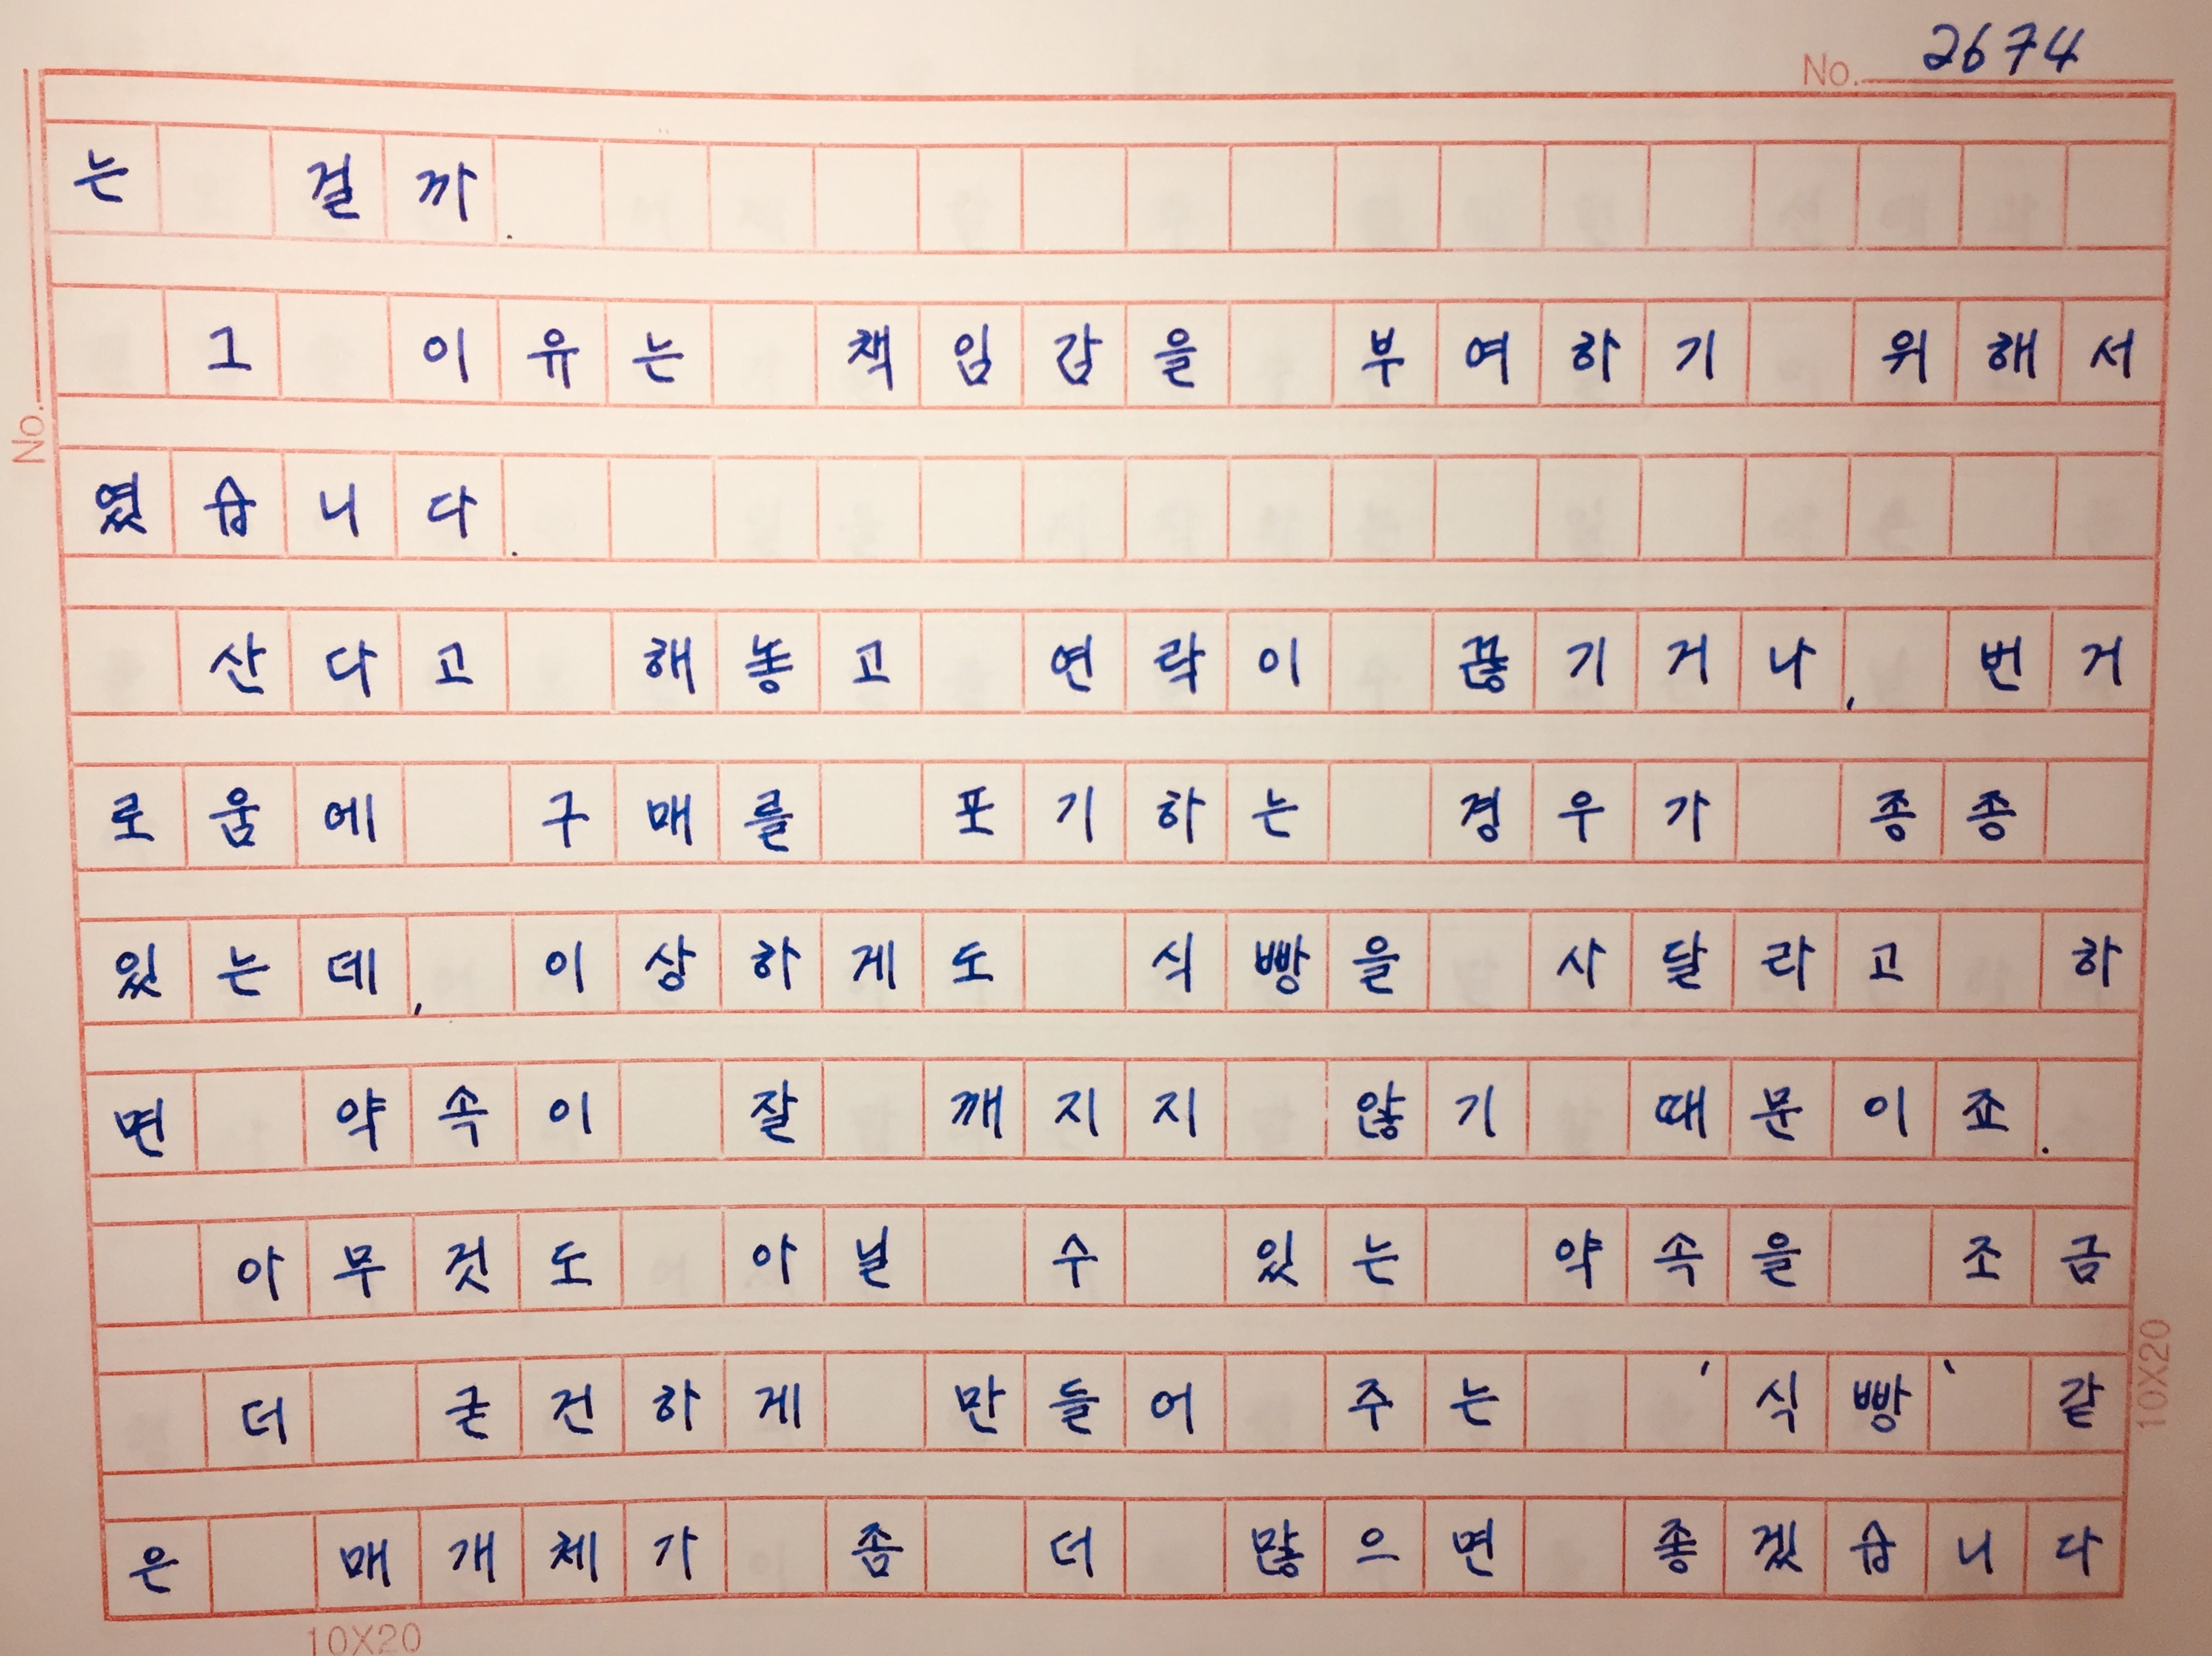 No. 2674
는 걸까.
그 이유는 책임감을 부여하기 위해서
였습니다.
산다고 해놓고 연락이 끊기거나, 번거
로움에 구매를 포기하는 경우가 종종
있는데, 이상하게도 식빵을 사달라고 하
면 약속이 잘 깨지지 않기 때문이죠.
아무것도 아닐 수 있는 약속을 조금
더 굳건하게 만들어 주는 '식빵' 같
은 매개체가 좀 더 많으면 좋겠습니다
No.
10X20
10X20